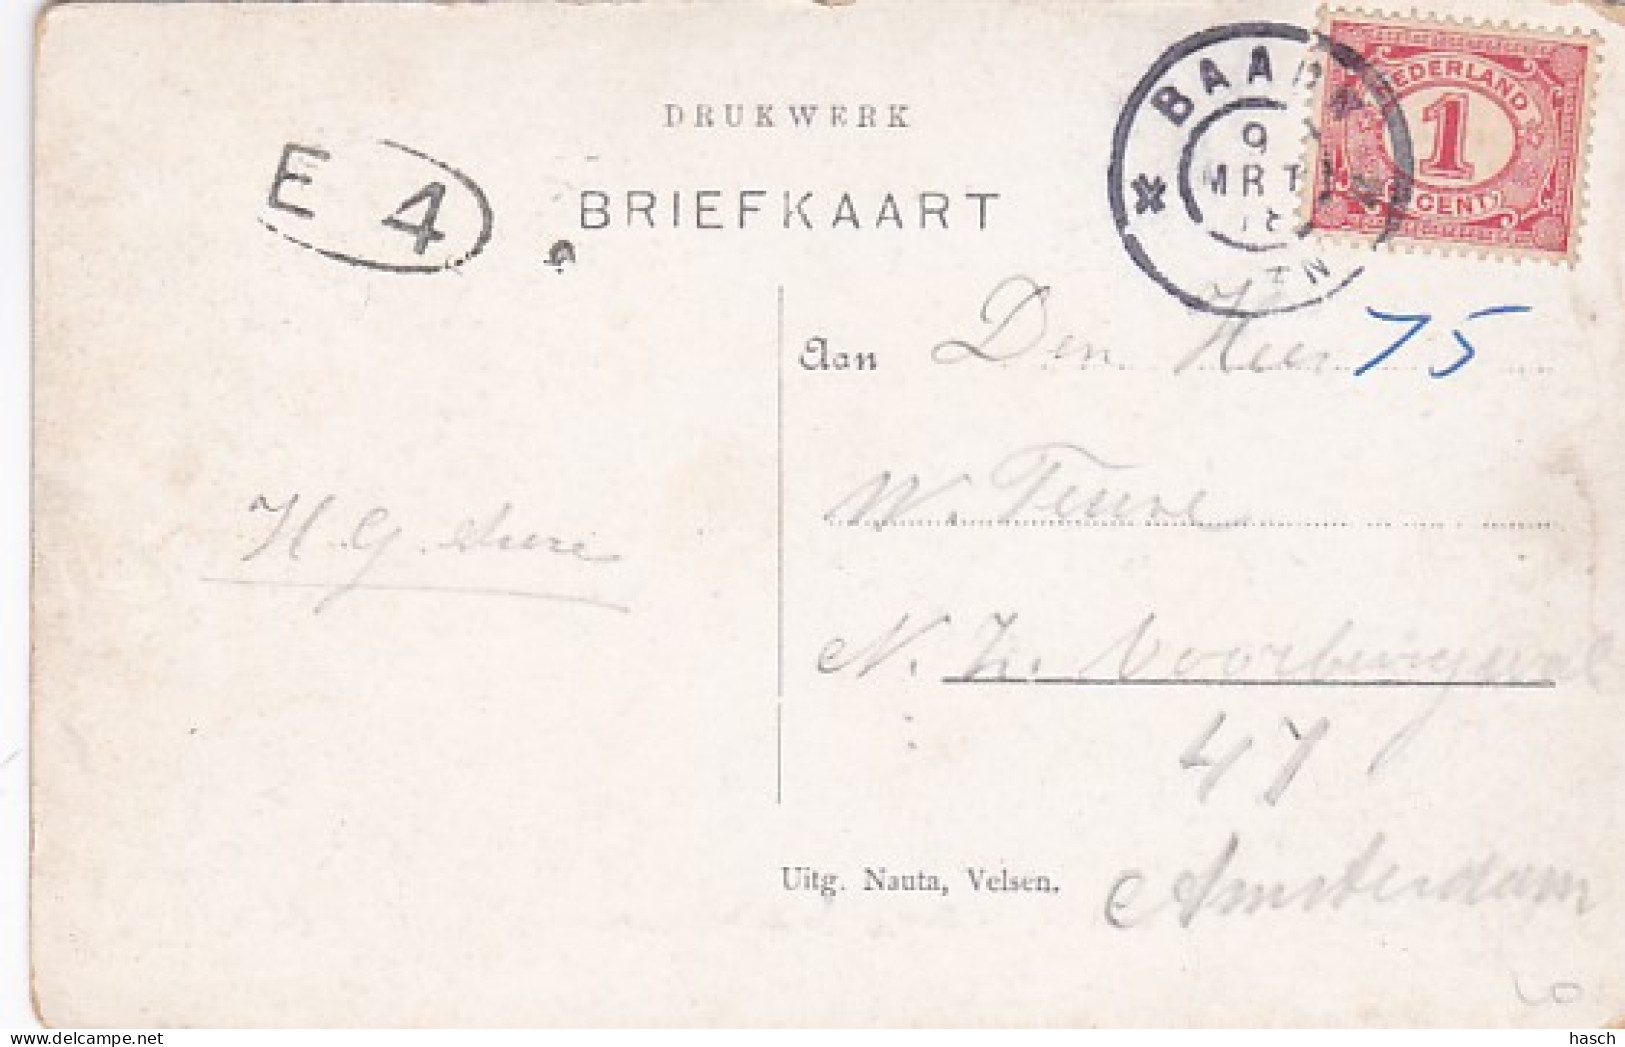 DRUKWERK
BRIEFKAART
E 4
BAARN
9
MRT
18
N
NEDERLAND
1
CENT
Aan Den Heer 75
W.
H. G.
N. Z. Voorburgwal
47
Uitg. Nauta, Velsen.
Amsterdam
www.delcampe.net
hasch